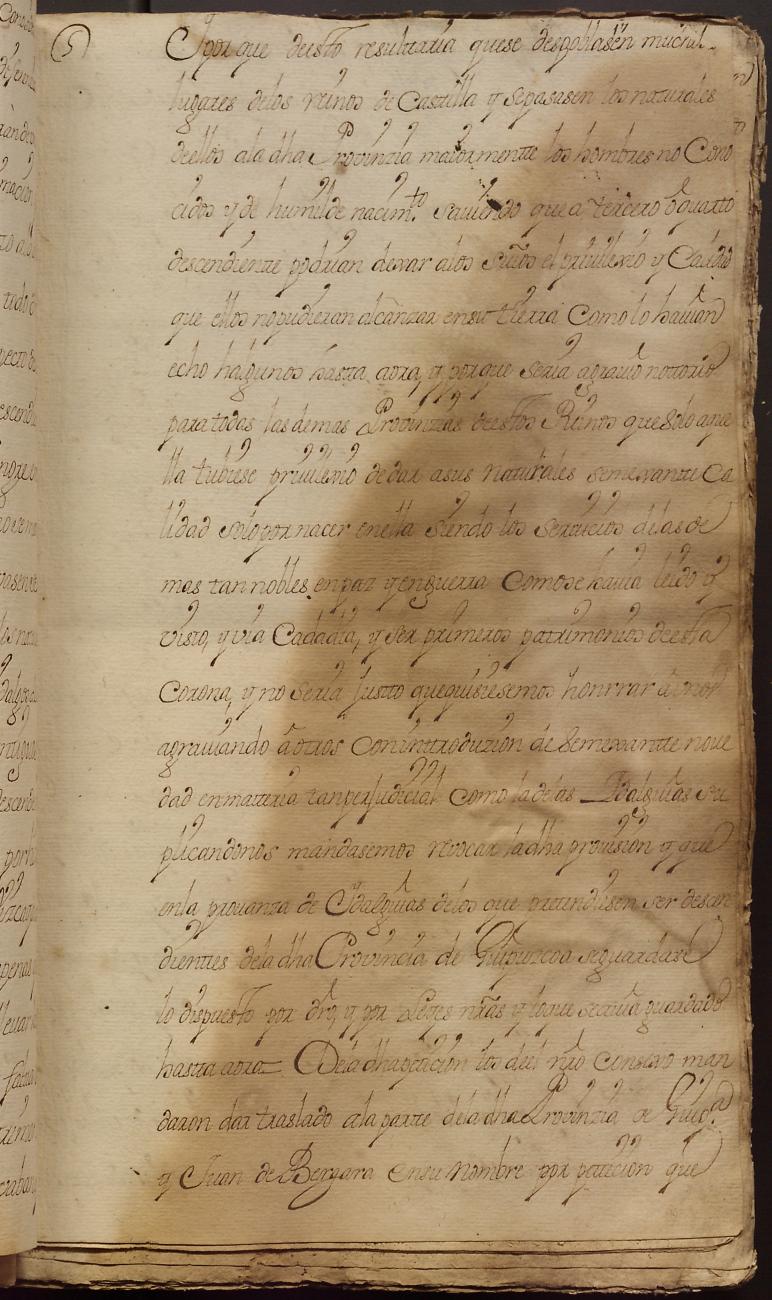 5
Y porque deesto resultaria quese despoblasen muchos
lugares delos reinos de Castilla y sepasasen los naturales
deellos ala dha Provinzia maiormente los hombres no Cono
cidos y de humilde nacimto saviendo que a tercero o quarto
descendiente podrian dexar alos suios el privilexio y Calidad
que ellos nopudieran alcanzar ensu tierra Como lo havian
echo halgunos hasta aora, y porque seria agravio notorio
para todas las demas Provinzias deestos Reinos que solo aque
lla tubiese privilexio de dar asus naturales semexante Ca
lidad solo por nacer enella siendo los servicios delas de
mas tan nobles en paz y enguerra Como se havia leido y
visto, y via Cadadia, y ser primeros patrimonios deesta
Corona, y no seria Justto que quisiesemos honrrar a unos
agraviando a otros Conintroduzion de semexantte nove
dad enmatteria tanperjudicial Como la delas Idalguias su
plicandonos mandasemos revocar la dha provision y que
enla provanza de Idalguias delos que pretendiesen ser desen
dientes dela dha Provincia de Guipuzcoa seguardase
lo dispuesto por dro, y por Leyes nras y loque se avia guardado
hasta aora Dela dha peticion los del nro Consexo man
daron dar traslado ala parte dela dha Provinzia de Guipca
y Juan de Bergara ensu nombre por peticion que